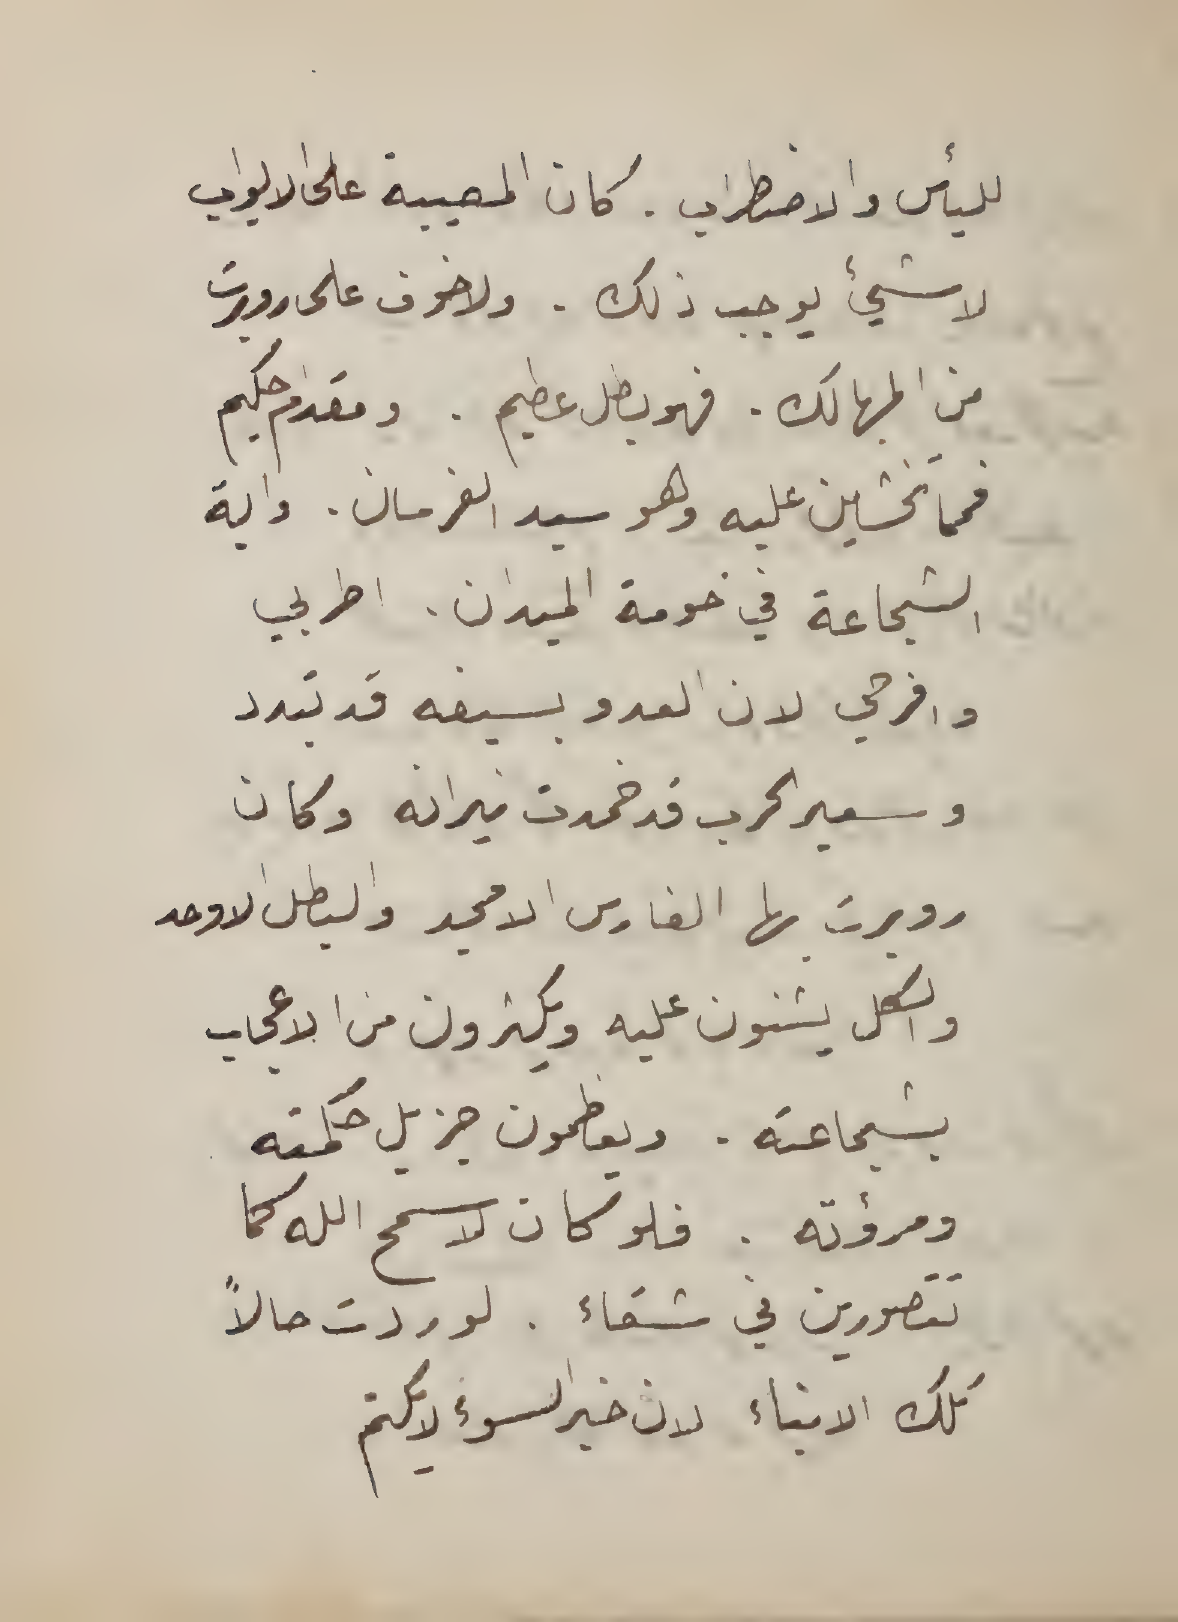 لليأس والاضطراب . كان المصيبة على الابواب
لا شيئ يوجب ذلك . ولا خوف على روبرت
من المهالك . فهو بطل عظيم . ومقدام حكيم
فمما تخشين عليه وهو سيد الفرسان . واية
الشجاعة في خومة الميدان . اطربي
وافرحي لان العدو بسيفه قد تبدد
وسعير الحرب قد خمدت نيرانه وكان
روبرت بها الفارس الامجد والبطل الاوحد
والكل يثنون عليه ويكثرون من الاعجاب
بشجاعته . ويعظمون جزيل حكمته
ومرؤته . فلو كان لا سمح الله كما
تتصورين في شقاء . لوردت حالاً
تلك الانباء لان خبر السوء لا يكتم